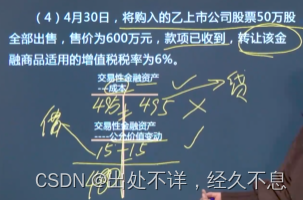 （4）4月30日，将购入的乙上市公司股票50万股
全部出售，售价为600万元，款项已收到，转让该金
融商品适用的增值税税率为6%。
交易性金融资产
---成本
借
贷
495
495
交易性金融资产
----公允价值变动
15
15
CSDN @出处不详，经久不息